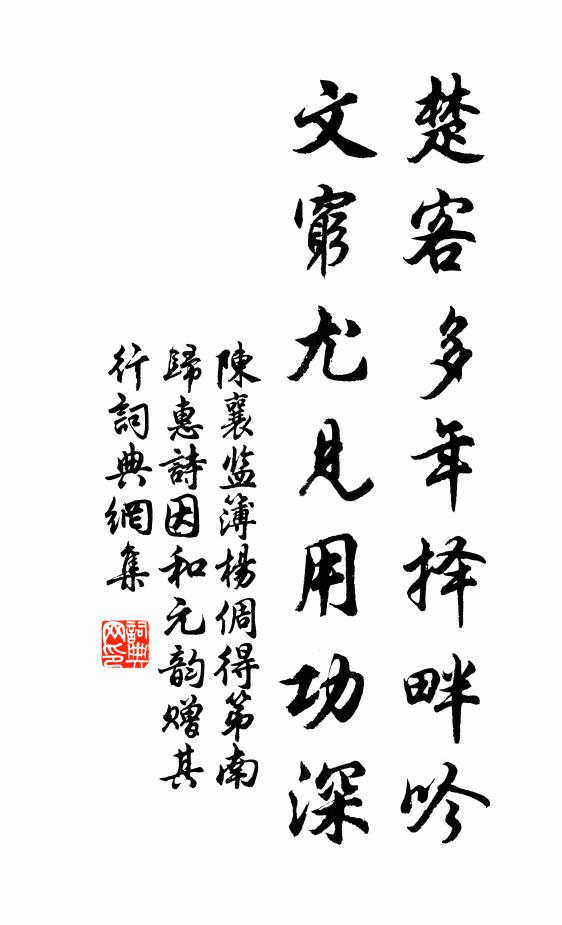 楚客多年择畔吟
文窮尤見用功深
陳襄监簿楊倜得第南
歸惠詩因和元韵贈其
行詞典網集
詞典网印